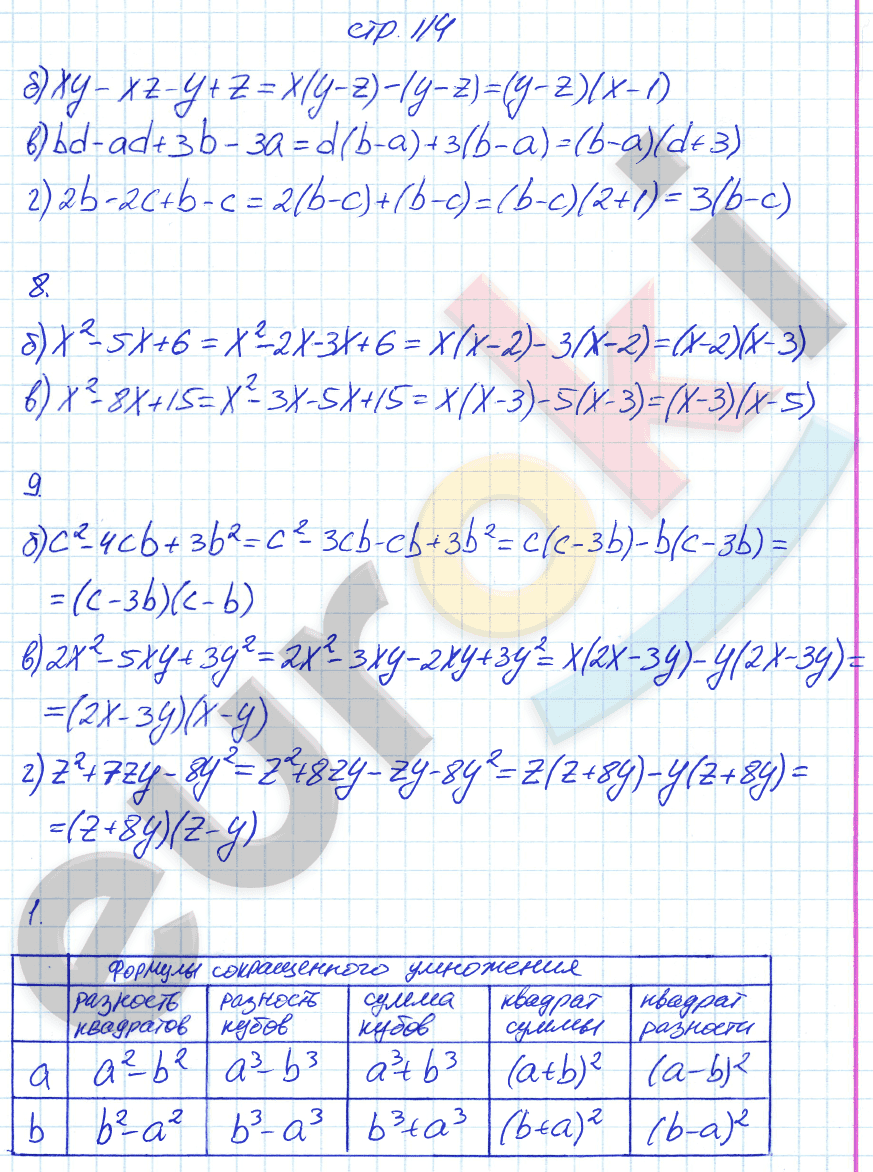 стр. 114
б) xy - xz - y + z = x(y-z) - (y-z) = (y-z)(x-1)
в) bd - ad + 3b - 3a = d(b-a) + 3(b-a) = (b-a)(d+3)
г) 2b - 2c + b - c = 2(b-c) + (b-c) = (b-c)(2+1) = 3(b-c)
8.
б) x² - 5x + 6 = x² - 2x - 3x + 6 = x(x-2) - 3(x-2) = (x-2)(x-3)
в) x² - 8x + 15 = x² - 3x - 5x + 15 = x(x-3) - 5(x-3) = (x-3)(x-5)
9.
б) c² - 4cb + 3b² = c² - 3cb - cb + 3b² = c(c-3b) - b(c-3b) =
= (c-3b)(c-b)
в) 2x² - 5xy + 3y² = 2x² - 3xy - 2xy + 3y² = x(2x-3y) - y(2x-3y) =
= (2x-3y)(x-y)
г) z² + 7zy - 8y² = z² + 8zy - zy - 8y² = z(z+8y) - y(z+8y) =
= (z+8y)(z-y)
1.
формулы сокращенного умножения
разность квадратов разность кубов сумма кубов квадрат суммы квадрат разности
a a² - b² a³ - b³ a³ + b³ (a+b)² (a-b)²
b b² - a² b³ - a³ b³ + a³ (b+a)² (b-a)²
euroki